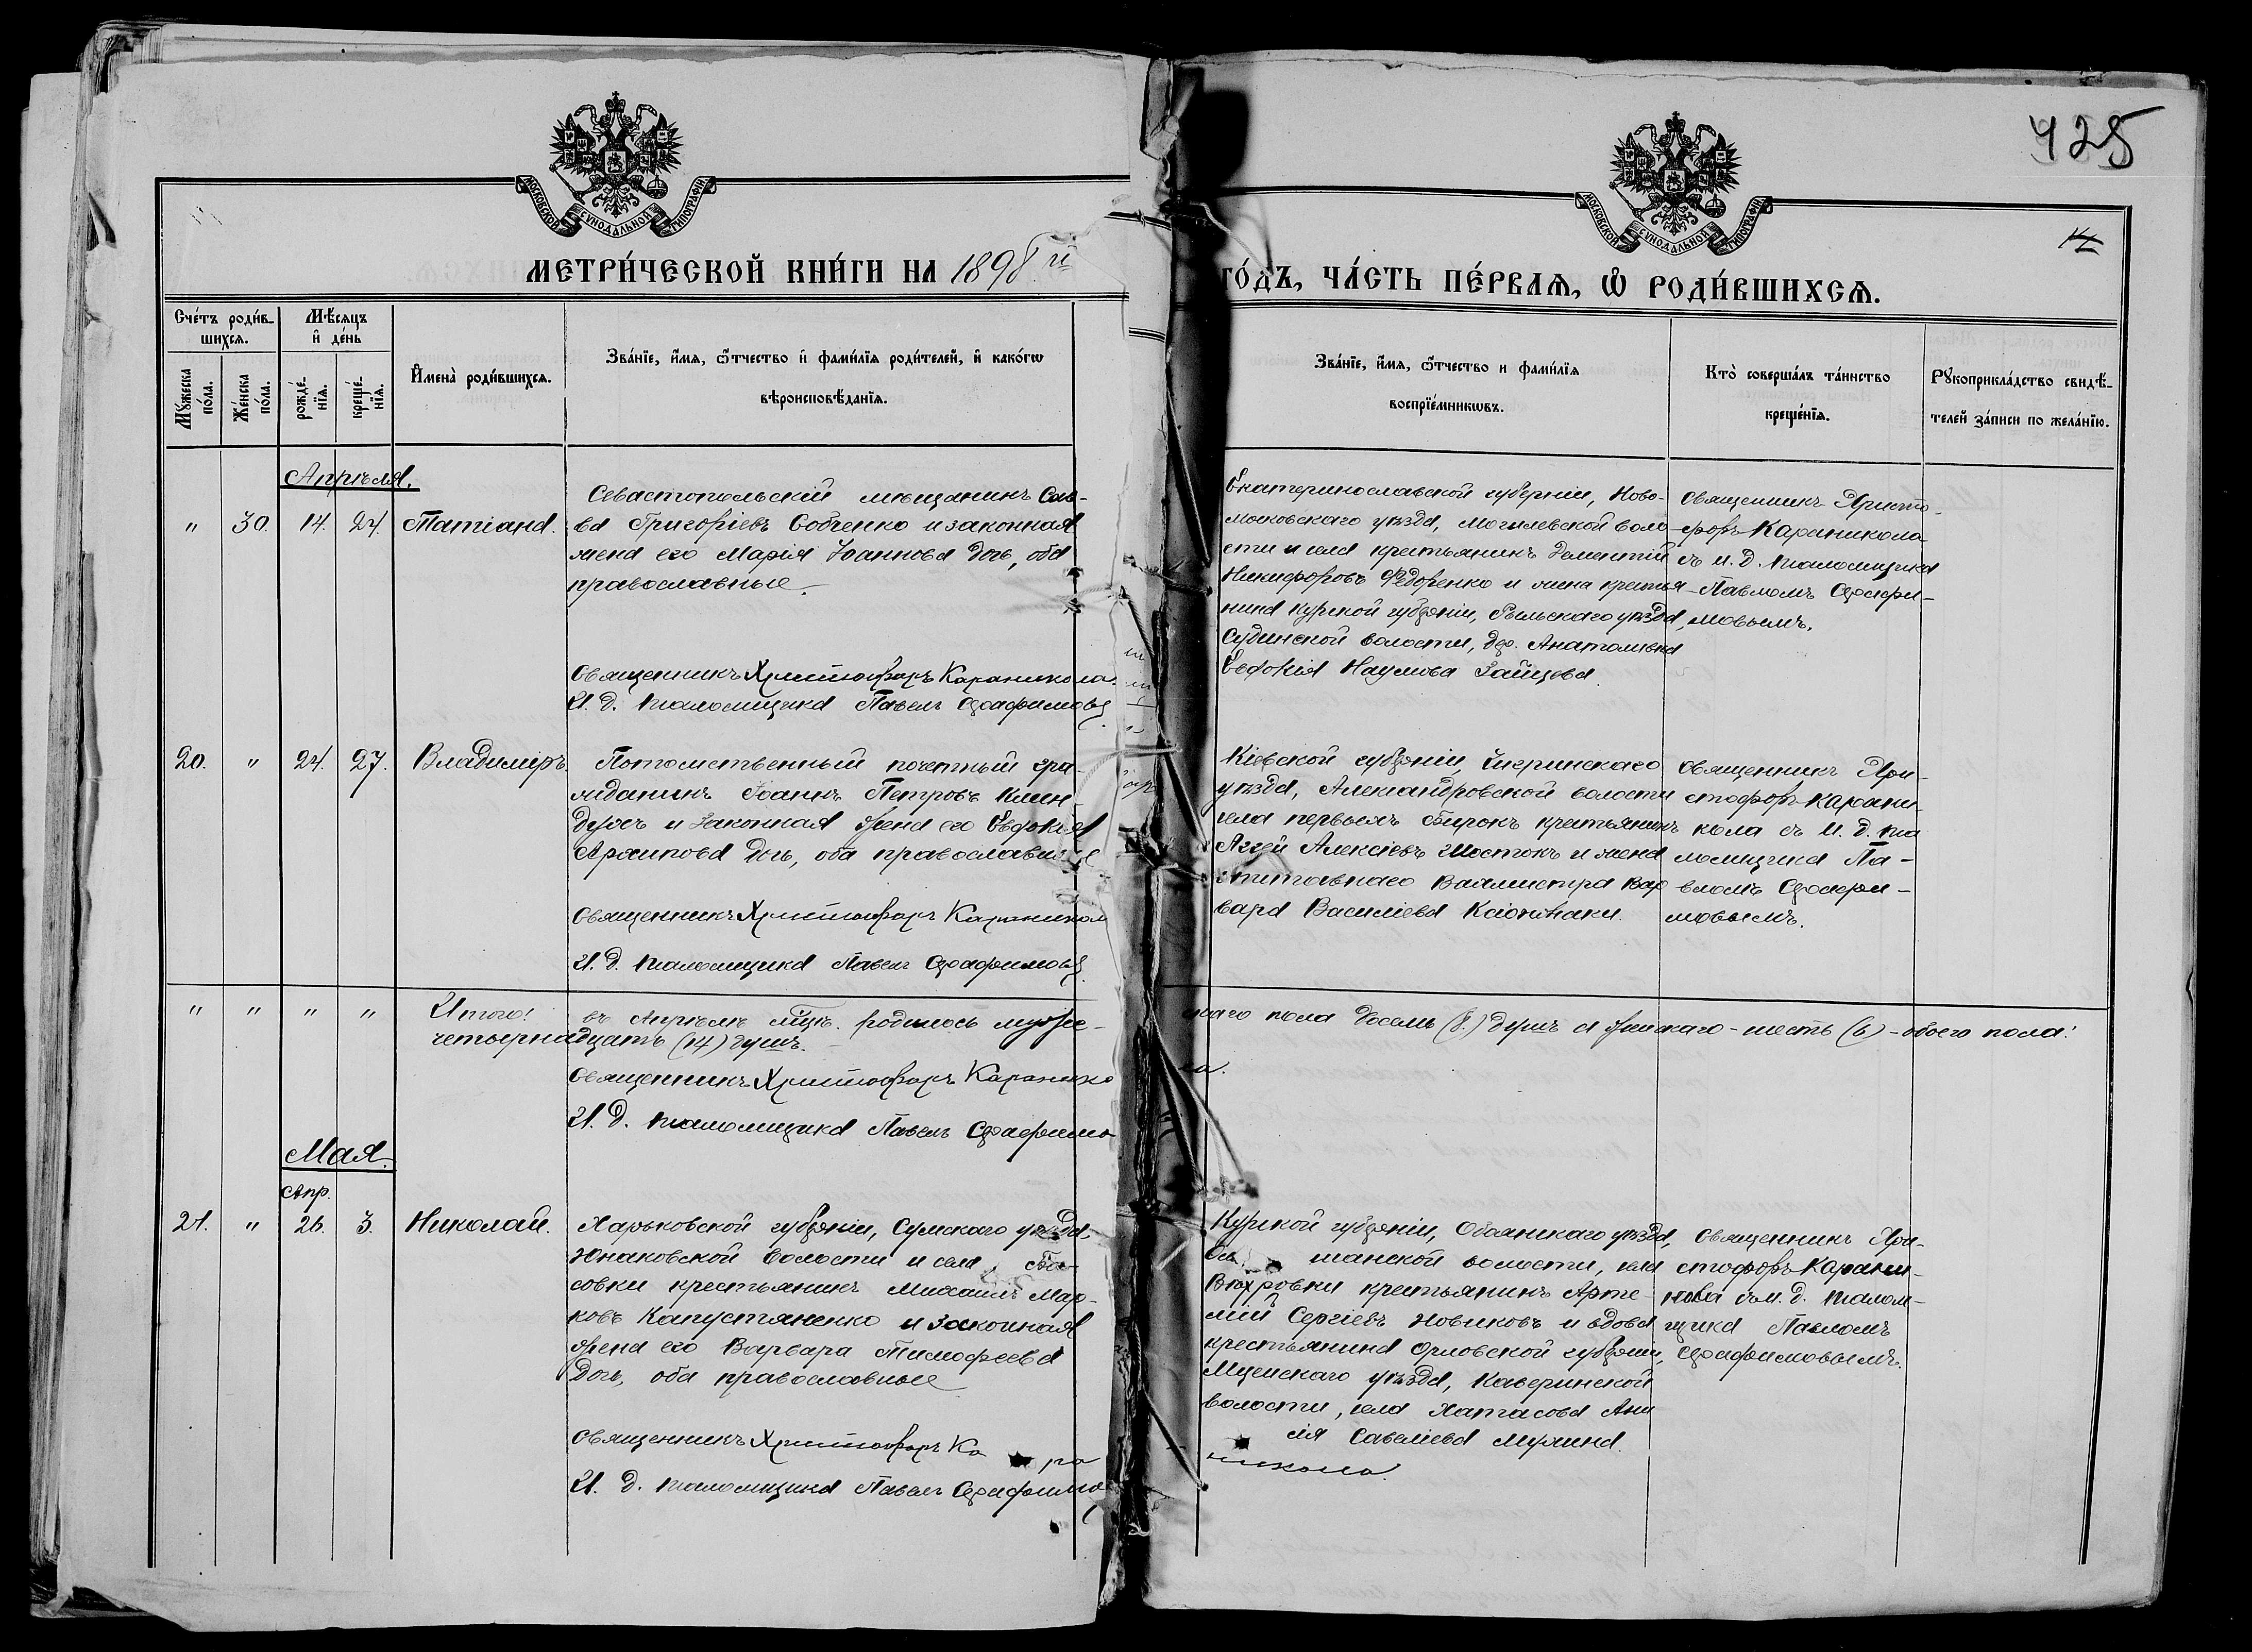 425
14
МОСКОВСКОЙ СУНОДАЛЬНОЙ ТИПОГРАФІИ.
МОСКОВСКОЙ СУНОДАЛЬНОЙ ТИПОГРАФІИ.
МЕТРИ́ЧЕСКОЙ КНИ́ГИ НА 1898 й
ГО́ДЪ, ЧА́СТЬ ПЕ́РВАѦ, Ѽ РОДИ́ВШИХСѦ.
Сче́тъ роди́в-
шихся.
Мѣ́сяцъ
и де́нь
Мꙋ́жеска по́ла.
Же́нска по́ла.
рожде́-
нїя.
креще́-
нїя.
И҆мена̀ роди́вшихся.
Зва́нїе, и҆́мя, ѻ҆́тчество и҆ фами́лїя роди́телей, и҆ како́гѡ
вѣроисповѣ́данїя.
Зва́нїе, и҆́мя, ѻ҆́тчество и фами́лїя
воспрїе́мникѡвъ.
Кто̀ соверша́лъ та́инство
креще́нїя.
Рꙋкоприкла́дство свидѣ́-
телей за́писи по жела́нїю.
Апрѣля.
" 30. 14. 24. Татіана.
Севастопольскій мѣщанинъ Сав-
ва Григоріевъ Собченко и законная
жена его Марія Іоаннова дочь, оба
православные.
Священникъ Христофоръ Караникола.
И. д. псаломщика Павелъ Серафимовъ
Екатеринославской губерніи, Ново-
московскаго уѣзда, Могилевской воло-
сти и села крестьянинъ Дементій
Никифоровъ Федоренко и жена крестья-
нина Курской губерніи, Рыльскаго уѣзда,
волости, дер.
Евдокія Наумова Зайцева.
Священникъ Христо-
форъ Караникола
съ и. д. псаломщика
Павломъ Серафи-
мовымъ.
20. " 24. 27. Владиміръ.
Потомственный почетный гра-
жданинъ Іоаннъ Петровъ
и законная жена его Евдокія
Архипова дочь, оба православные
Священникъ Христофоръ Караникол
И. д. псаломщика Павелъ Серафимовъ
Кіевской губерніи, Чигринскаго
уѣзда, Александровской волости
села крестьянинъ
Аггей Алексіевъ Шостокъ и жена
Вахмистра Вар
вара Василіева
Священникъ Хри-
стофоръ Карани-
кола съ и. д. пса
ломщика Па-
вломъ Серафи-
мовымъ.
" " " " Итого: въ Апрѣлѣ мцѣ. родилось мужес-
каго пола восемь (8.) душъ а женскаго - шесть (6) - обоего пола:
четырнадцать (14) душъ.
Священникъ Христофоръ Каранико
ла.
И. д. псаломщика Павелъ Серафимо
Мая.
Апр.
21. " 26. 3. Николай.
Харьковской губерніи, Сумскаго уѣзда,
Юнаковской волости и села, Ба-
совки крестьянинъ Михаилъ Мар-
ковъ Капустяненко и законная
жена его Варвара Тимофеева
дочь, оба православные
Священникъ Христофоръ Ка ра
никола
И. д. псаломщика Павелъ Серафимо
Курской губерніи, Обоянскаго уѣзда,
шанской волости, села
крестьянинъ Арте-
мій Сергіевъ Новиковъ и вдова
крестьянина Орловской губерніи,
Мценскаго уѣзда,
волости, села
Савеліева Мухина.
Священникъ Хри-
стофоръ Карани-
кола съ и. д. псалом-
щика Павломъ
Серафимовымъ.